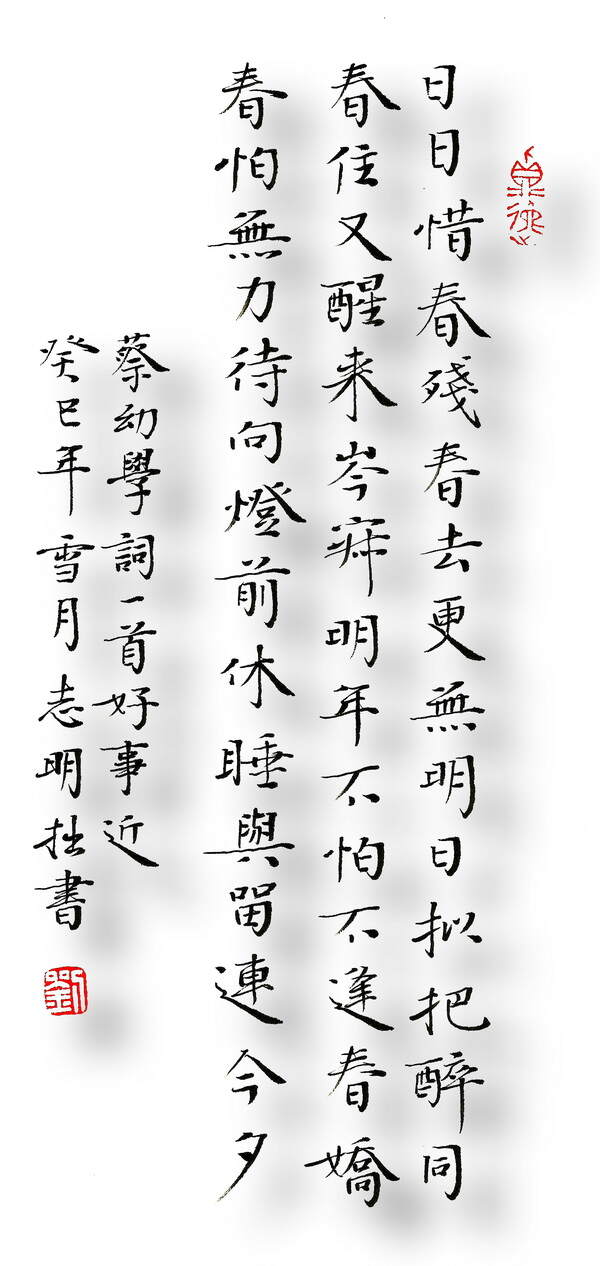 日日惜春殘春去更無明日拟把醉同
春住又醒来岑寂明年不怕不逢春嬌
春怕無力待向燈前休睡與留連今夕
蔡幼學詞一首好事近
癸巳年雪月志明拙書
劉